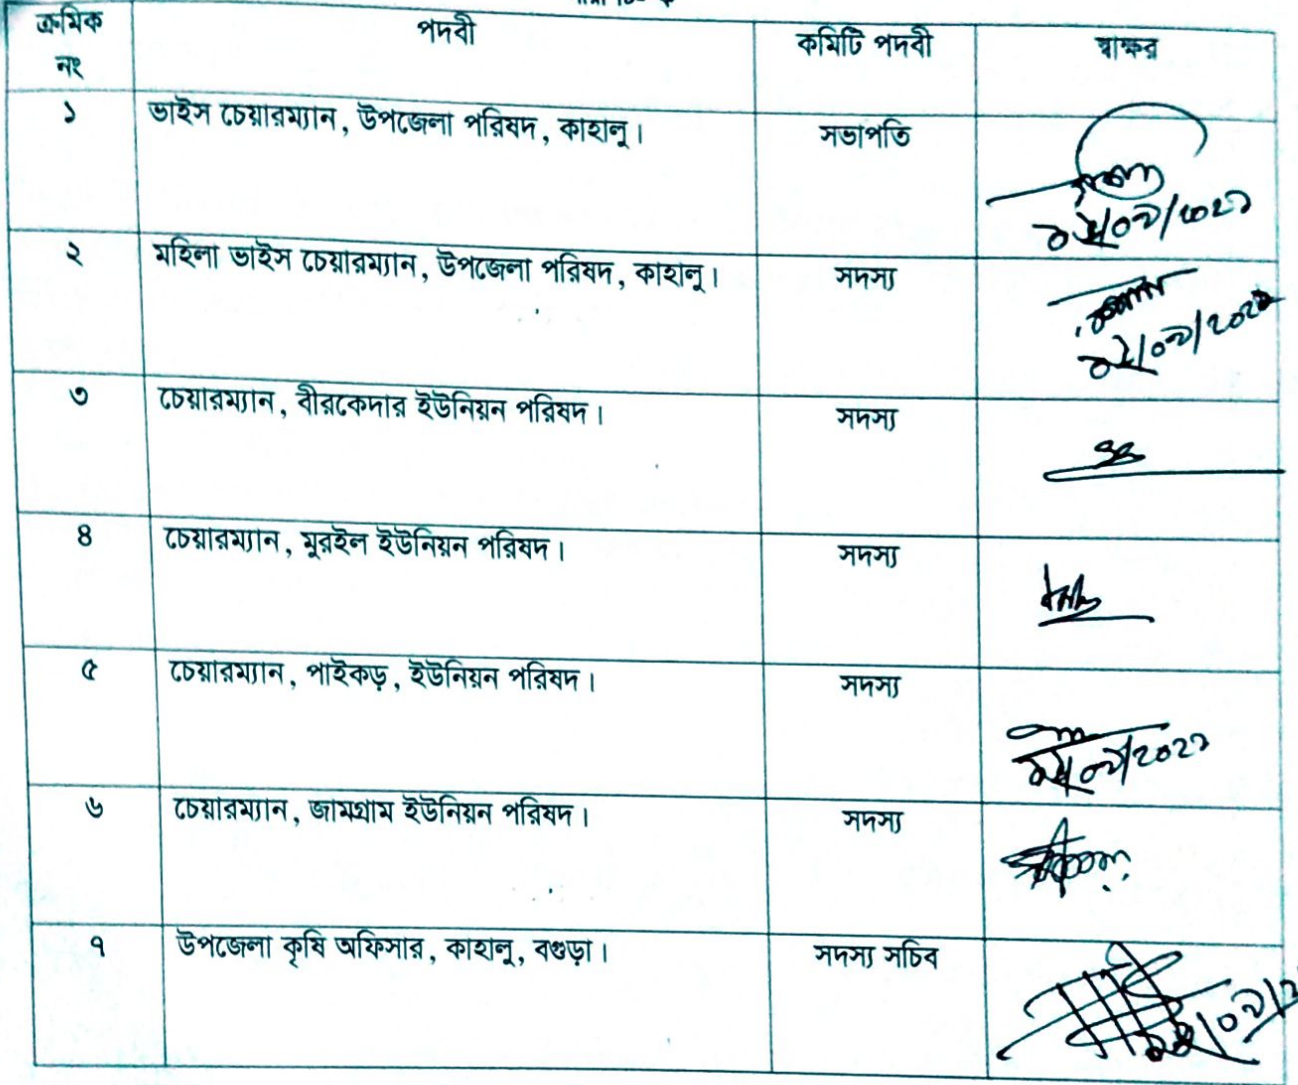 ক্রমিক নং পদবী কমিটি পদবী স্বাক্ষর
১ ভাইস চেয়ারম্যান, উপজেলা পরিষদ, কাহালু। সভাপতি
২ মহিলা ভাইস চেয়ারম্যান, উপজেলা পরিষদ, কাহালু। সদস্য
৩ চেয়ারম্যান, বীরকেদার ইউনিয়ন পরিষদ। সদস্য
৪ চেয়ারম্যান, মুরইল ইউনিয়ন পরিষদ। সদস্য
৫ চেয়ারম্যান, পাইকড়, ইউনিয়ন পরিষদ। সদস্য
৬ চেয়ারম্যান, জামগ্রাম ইউনিয়ন পরিষদ। সদস্য
৭ উপজেলা কৃষি অফিসার, কাহালু, বগুড়া। সদস্য সচিব